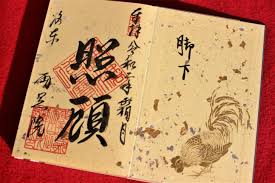 脚下
奉拝 令和二年霜月
照顧
洛東 両足院